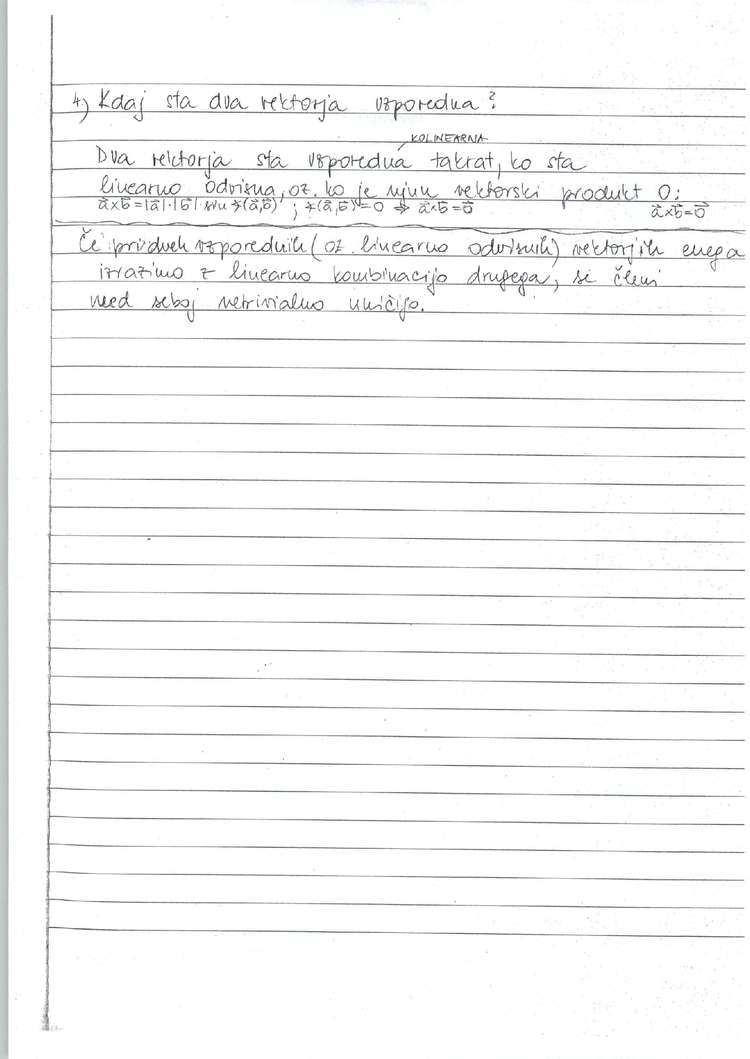 4.) Kdaj sta dva vektorja vzporedna?
KOLINEARNA
Dva vektorja sta vzporedna takrat, ko sta
linearno odvisna, oz. ko je njun vektorski produkt 0:
a⃗×b⃗=|a⃗|·|b⃗|·sin∢(a⃗,b⃗) ; ∢(a⃗,b⃗)=0 ⇒ a⃗×b⃗=0⃗ a⃗×b⃗=0⃗
Če pri dveh vzporednih (oz. linearno odvisnih) vektorjih enega
izrazimo z linearno kombinacijo drugega, se členi
med seboj netrivialno uničijo.